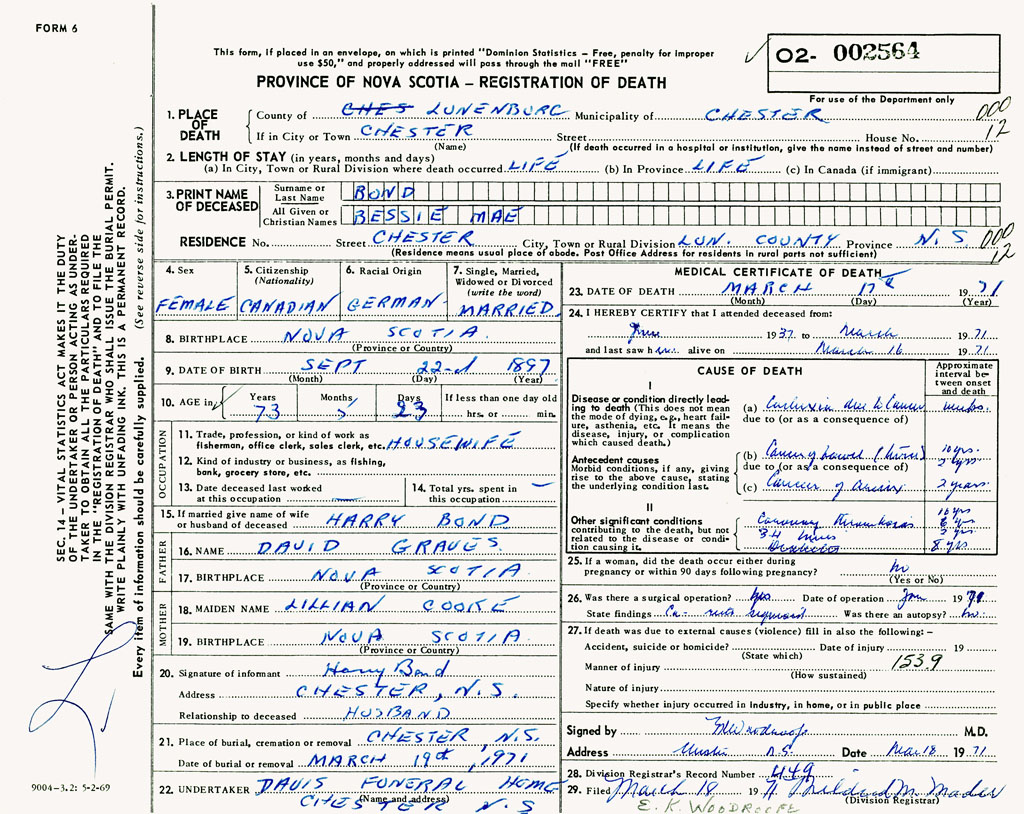 FORM 6
This form, if placed in an envelope, on which is printed "Dominion Statistics – Free, penalty for improper
use $50," and properly addressed will pass through the mail "FREE"
PROVINCE OF NOVA SCOTIA – REGISTRATION OF DEATH
02- 002564
For use of the Department only
1. PLACE OF DEATH County of CHES LUNENBURG Municipality of CHESTER 000
If in City or Town CHESTER Street House No. 12
(Name) (If death occurred in a hospital or institution, give the name instead of street and number)
2. LENGTH OF STAY (in years, months and days)
(a) In City, Town or Rural Division where death occurred LIFE (b) In Province LIFE (c) In Canada (if immigrant)
3. PRINT NAME OF DECEASED Surname or Last Name BOND
All Given or Christian Names BESSIE MAE
RESIDENCE No. Street CHESTER City, Town or Rural Division LUN. COUNTY Province N.S 000
(Residence means usual place of abode. Post Office Address for residents in rural parts not sufficient) 12
4. Sex FEMALE
5. Citizenship (Nationality) CANADIAN
6. Racial Origin GERMAN
7. Single, Married, Widowed or Divorced (write the word) MARRIED
8. BIRTHPLACE NOVA SCOTIA
(Province or Country)
9. DATE OF BIRTH SEPT 22nd 1897
(Month) (Day) (Year)
10. AGE in Years 73 Months 5 Days 23 If less than one day old hrs. or min.
OCCUPATION
11. Trade, profession, or kind of work as fisherman, office clerk, sales clerk, etc. HOUSEWIFE
12. Kind of industry or business, as fishing, bank, grocery store, etc.
13. Date deceased last worked at this occupation
14. Total yrs. spent in this occupation
15. If married give name of wife or husband of deceased HARRY BOND
FATHER
16. NAME DAVID GRAVES
17. BIRTHPLACE NOVA SCOTIA
(Province or Country)
MOTHER
18. MAIDEN NAME LILLIAN COOKE
19. BIRTHPLACE NOVA SCOTIA
(Province or Country)
20. Signature of informant Harry Bond
Address CHESTER, N.S.
Relationship to deceased HUSBAND
21. Place of burial, cremation or removal CHESTER, N.S.
Date of burial or removal MARCH 19th, 1971
22. UNDERTAKER DAVIS FUNERAL HOME
(Name and address) CHESTER N.S
MEDICAL CERTIFICATE OF DEATH
23. DATE OF DEATH MARCH 17th 1971
(Month) (Day) (Year)
24. I HEREBY CERTIFY that I attended deceased from:
June 1937 to March 1971
and last saw her alive on March 16 1971
CAUSE OF DEATH
Approximate interval between onset and death
I
Disease or condition directly leading to death (This does not mean the mode of dying, e.g., heart failure, asthenia, etc. It means the disease, injury, or complication which caused death.)
(a) due to Cancer
due to (or as a consequence of)
Antecedent causes
Morbid conditions, if any, giving rise to the above cause, stating the underlying condition last.
(b) Cancer of bowel 10 yrs.
due to (or as a consequence of)
(c) Cancer of 2 years
II
Other significant conditions contributing to the death, but not related to the disease or condition causing it.
Coronary Thrombosis
3-4 times
Diabetes 8 yrs
25. If a woman, did the death occur either during pregnancy or within 90 days following pregnancy? no
(Yes or No)
26. Was there a surgical operation? yes Date of operation Jan 1971
State findings Ca sigmoid Was there an autopsy? no
27. If death was due to external causes (violence) fill in also the following: –
Accident, suicide or homicide? Date of injury 19
(State which)
Manner of injury 153.9
(How sustained)
Nature of injury
Specify whether injury occurred in industry, in home, or in public place
Signed by M.D.
Address N.S. Date Mar 18 1971
28. Division Registrar's Record Number 449
29. Filed March 18 1971 Mildred M. Mader
(Division Registrar)
E.K. WOODROOFE
SEC. 14 – VITAL STATISTICS ACT MAKES IT THE DUTY
OF THE UNDERTAKER OR PERSON ACTING AS UNDER-
TAKER TO OBTAIN ALL THE PARTICULARS REQUIRED
IN THE "REGISTRATION OF DEATH" AND TO FILE THE
SAME WITH THE DIVISION REGISTRAR WHO SHALL ISSUE THE BURIAL PERMIT.
WRITE PLAINLY WITH UNFADING INK. THIS IS A PERMANENT RECORD.
Every item of information should be carefully supplied. (See reverse side for instructions.)
9004-3.2: 5-2-69